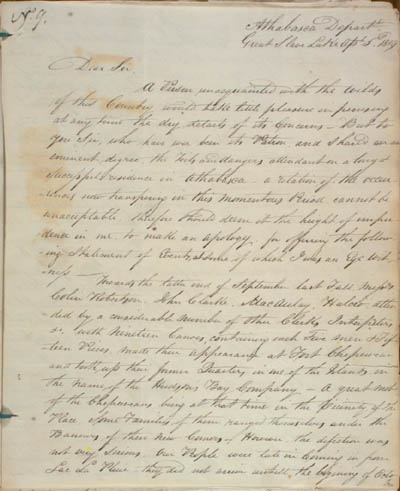 No 9.
Athabasca Departt
Great Slave Lake Apl 5th 1819
Dear Sir
A Person unacquainted with the wilds
of this Country would take little pleasure in perusing
at any time the dry details of its Concerns - But to
you Sir, who have been its Patron and Shared in an
eminent degree the toils and dangers attendant on a long &
Successful residence in Athabasca a relation of the occur
-rences now transpiring in this momentous Period cannot be
unacceptable I before should deem it the height of impru
dence in me to make an apology, for offering the follow
-ing Statement of Events, at some of which I was an Eye Wit
-ness - Towards the latter end of September last Fall Messrs
Colin Robertson, John Clarke, MacAulay, atten
ded by a considerable number of other Clerks Interpreters
&c with Nineteen Canoes, containing each Five men & Fif
teen Pieces, made their appearance at Fort Chipewean
and took up their former Quarters in one of the Islands in
the name of the Hudsons Bay Company - A great most
of the Chepeweans being at that time in the Vicinity of the
Place Some Families of them ranged themselves under the
Banners of these New Comers - However the defection was
not very Serious. Our People were late in Coming in from
Lac La Pluie - they did not arrive untill the beginning of Octo